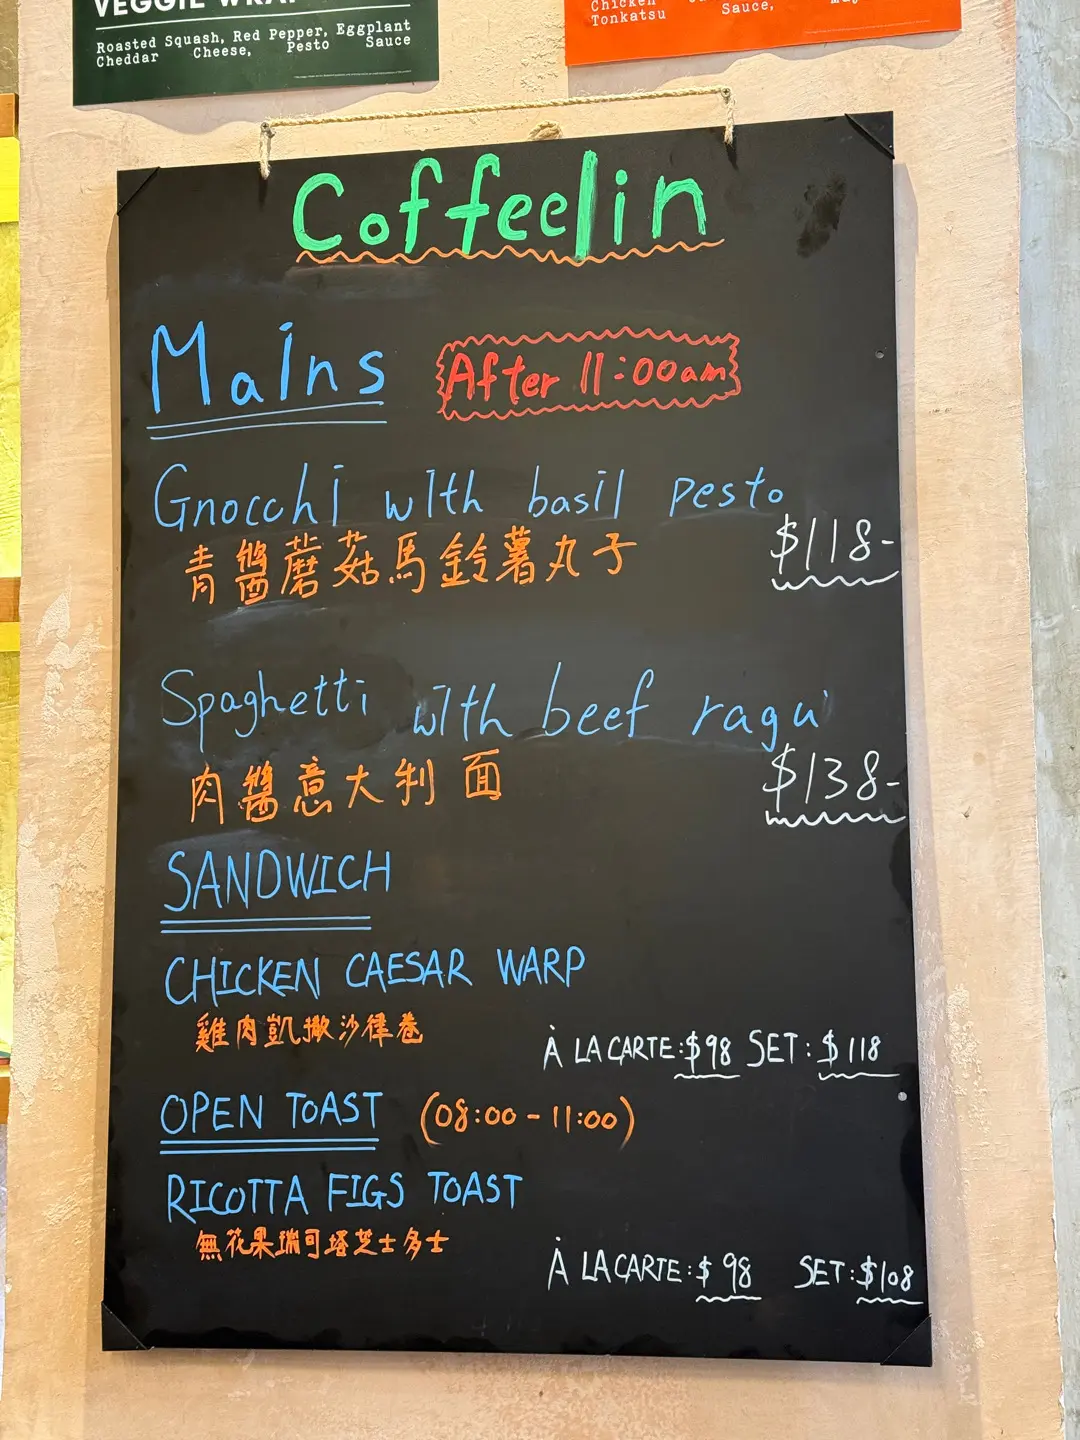 VEGGIE WRAP
Roasted Squash, Red Pepper, Eggplant
Cheddar Cheese, Pesto Sauce
Chicken
Tonkatsu Sauce,
Coffeelin
Mains
After 11:00am
Gnocchi with basil pesto
青醬蘑菇馬鈴薯丸子
$118-
Spaghetti with beef ragu
肉醬意大利面
$138-
SANDWICH
CHICKEN CAESAR WARP
雞肉凱撒沙律卷
À LA CARTE:$98 SET:$118
OPEN TOAST (08:00-11:00)
RICOTTA FIGS TOAST
無花果瑞可塔芝士多士
À LA CARTE:$98 SET:$108